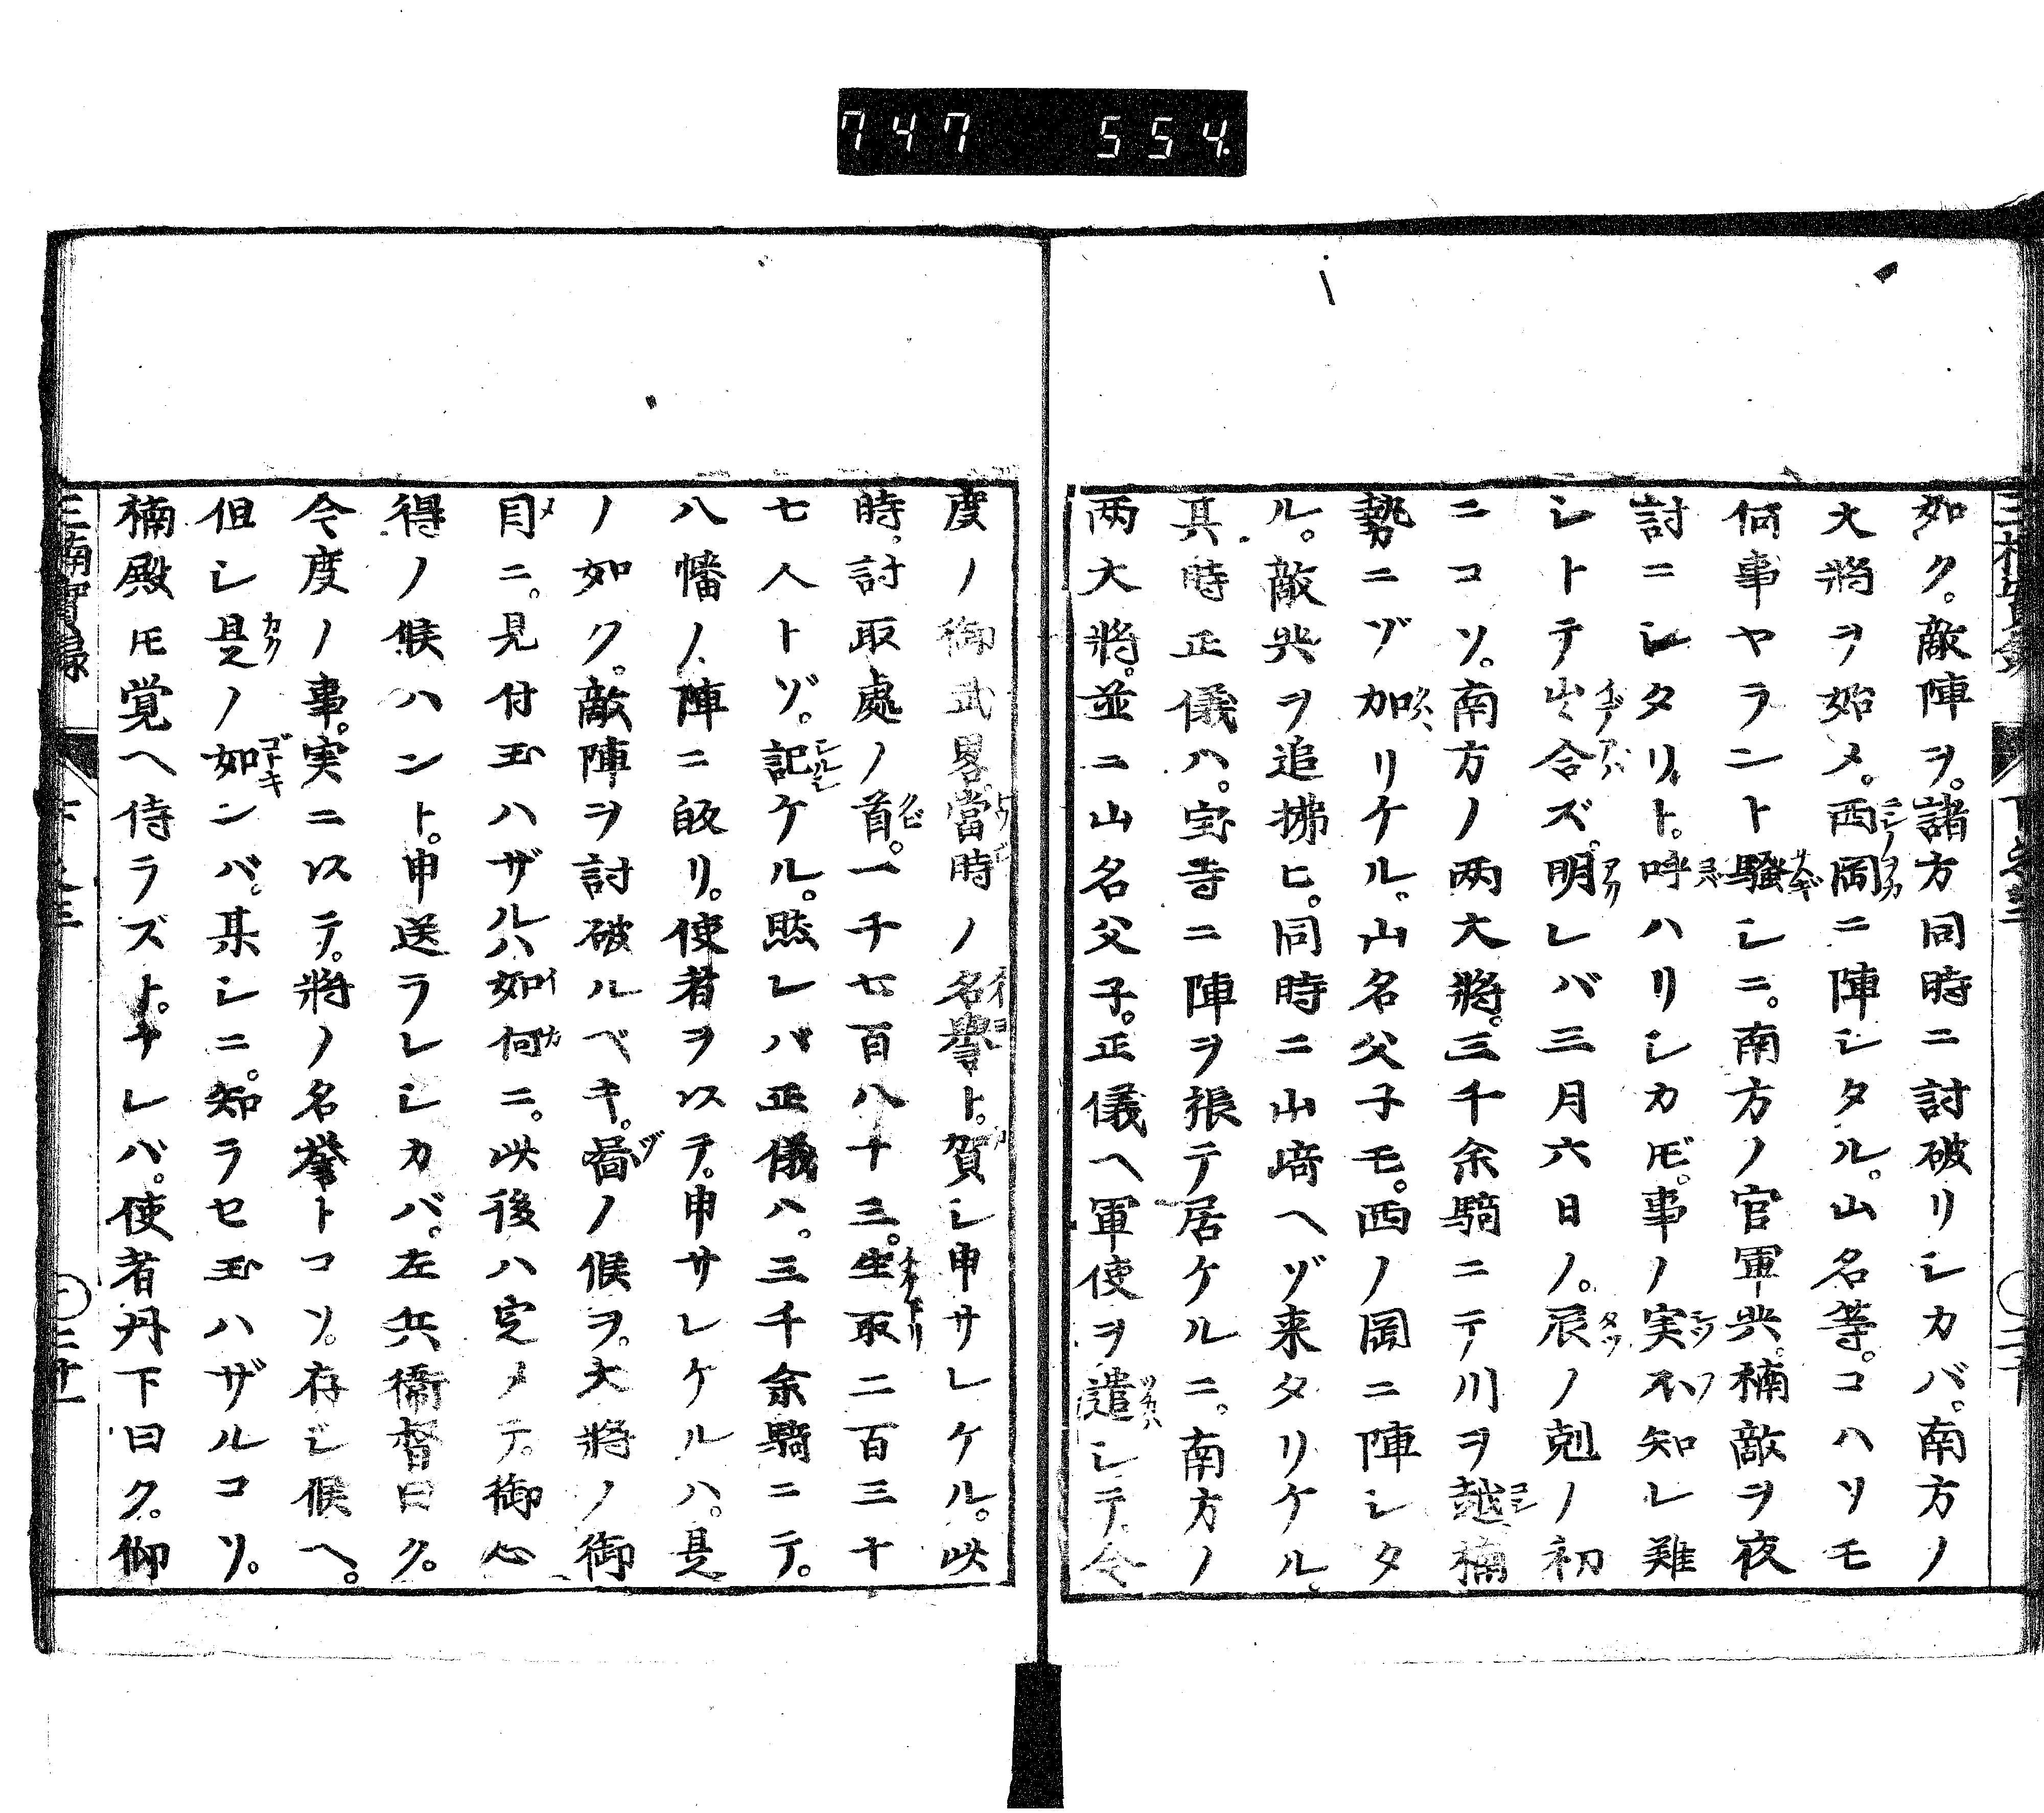 747 554.
如ク。敵陣ヲ。諸方同時ニ討破リシカバ。南方ノ
大將ヲ始メ。西岡ニ陣シタル。山名等。コハソモ
何事ヤラント騒シニ。南方ノ官軍共。楠敵ヲ夜
討ニシタリト。呼ハリシカ𪜈。事ノ実不知レ難
シトテ出合ズ。明レバ三月六日ノ。辰ノ剋ノ初
ニコソ。南方ノ両大將。三千余騎ニテ川ヲ越楠
勢ニゾ加リケル。山名父子モ。西ノ岡ニ陣シタ
ル。敵共ヲ追拂ヒ。同時ニ山﨑ヘゾ来タリケル。
其時正儀ハ。宝寺ニ陣ヲ張テ居ケルニ。南方ノ
両大將。並ニ山名父子。正儀ヘ軍使ヲ遣シテ。今
度ノ御武畧。當時ノ名譽ト。賀シ申サレケル。此
時。討取處ノ首。一千七百八十三。生取二百三十
七人トゾ。記ケル。㷊レバ正儀ハ。三千余騎ニテ。
八幡ノ陣ニ皈リ。使者ヲ以テ。申サレケルハ。是
ノ如ク。敵陣ヲ討破ルベキ。啚ノ候ヲ。大將ノ御
目ニ。見付玉ハザルハ如何ニ。此後ハ定メテ。御心
得ノ候ハント。申送ラレシカバ。左兵衞督曰ク。
今度ノ事。実ニ以テ。將ノ名挙トコソ。存ジ候ヘ。
但シ是ノ如ンバ。某シニ。知ラセ玉ハザルコソ。
楠殿𪜈覚ヘ侍ラズト。ナレバ。使者丹下曰ク。仰